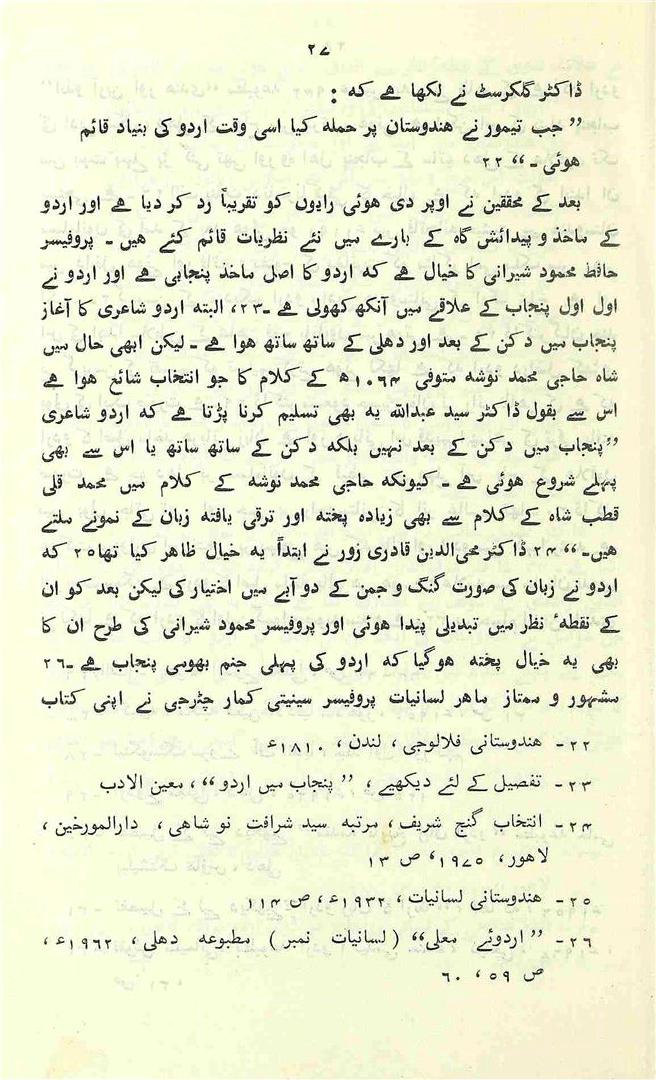 ۲۷
ڈاکٹر گلکرسٹ نے لکھا ہے کہ :
”جب تیمور نے ھندوستان پر حملہ کیا اسی وقت اردو کی بنیاد قائم
ھوئی ۔“ ۲۲
بعد کے محققین نے اوپر دی ھوئی رایوں کو تقریباً رد کر دیا ہے اور اردو
کے ماخذ و پیدائش گاہ کے بارے میں نئے نظریات قائم کئے ھیں ۔ پروفیسر
حافظ محمود شیرانی کا خیال ہے کہ اردو کا اصل ماخذ پنجابی ہے اور اردو نے
اول اول پنجاب کے علاقے میں آنکھ کھولی ہے ۔۲۳، البتہ اردو شاعری کا آغاز
پنجاب میں دکن کے بعد اور دھلی کے ساتھ ساتھ ھوا ہے ۔ لیکن ابھی حال میں
شاہ حاجی محمد نوشہ متوفی ۱۰۶۴ھ کے کلام کا جو انتخاب شائع ھوا ہے
اس سے بقول ڈاکٹر سید عبداللہ یہ بھی تسلیم کرنا پڑتا ہے کہ اردو شاعری
”پنجاب میں دکن کے بعد نہیں بلکہ دکن کے ساتھ ساتھ یا اس سے بھی
پہلے شروع ھوئی ہے ۔ کیونکہ حاجی محمد نوشہ کے کلام میں محمد قلی
قطب شاہ کے کلام سے بھی زیادہ پختہ اور ترقی یافتہ زبان کے نمونے ملتے
ھیں۔“ ۲۴ ڈاکٹر محی الدین قادری زور نے ابتداً یہ خیال ظاھر کیا تھا۲۵ کہ
اردو نے زبان کی صورت گنگ و جمن کے دو آبے میں اختیار کی لیکن بعد کو ان
کے نقطہٴ نظر میں تبدیلی پیدا ھوئی اور پروفیسر محمود شیرانی کی طرح ان کا
بھی یہ خیال پختہ ھوگیا کہ اردو کی پہلی جنم بھومی پنجاب ہے ۔۲۶
مشہور و ممتاز ماھر لسانیات پروفیسر سینیتی کمار چٹرجی نے اپنی کتاب
۲۲ - ھندوستانی فلالوجی ، لندن ، ۱۸۱۰ء
۲۳ - تفصیل کے لئے دیکھیے ، ”پنجاب میں اردو“ ، معین الادب
۲۴ - انتخاب گنج شریف، مرتبہ سید شرافت نو شاھی ، دارالمورخین ،
لاھور، ۱۹۷۵ء ص ۱۳
۲۵ - ھندوستانی لسانیات ، ۱۹۳۲ء، ص ۱۱۴
۲۶ - ”اردوئے معلی“ (لسانیات نمبر) مطبوعہ دھلی ، ۱۹۶۲ء ،
ص ۵۹ ، ۶۰